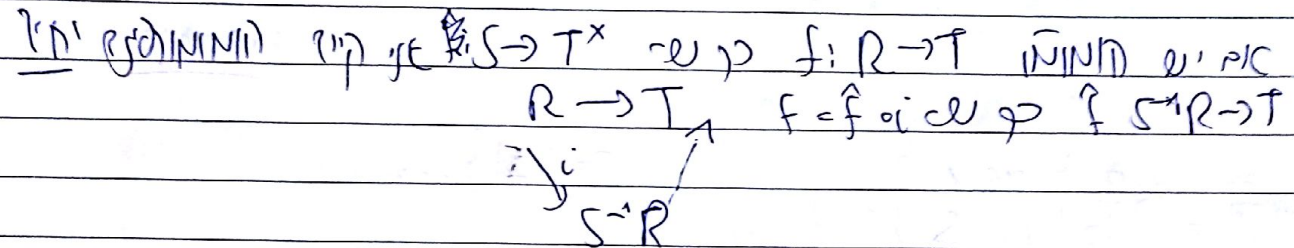 אם יש הומומו׳ f: R→T כך ש- S→T^x אז קיים הומומורפיזם יחיד
f̂ S⁻¹R→T כך ש f = f̂∘i R → T
i
S⁻¹R